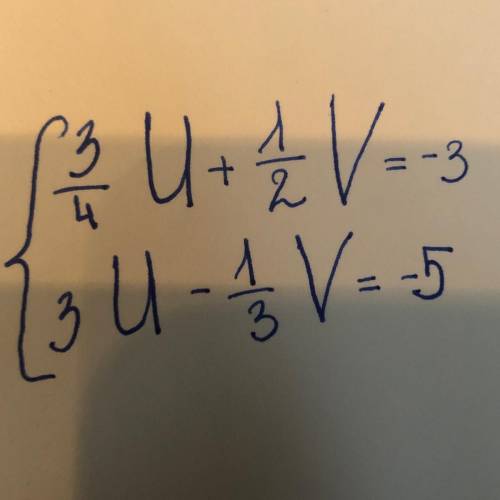 3/4 U + 1/2 V = -3
3 U - 1/3 V = -5